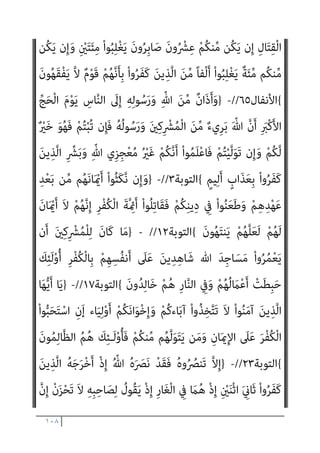 ٱلْقِتَالِ إِن يَكُن مِّنكُمْ عِشْرُونَ صَابِرُونَ يَغْلِبُوا۟ مِئَتَيْنِ وَإِن يَكُن
مِّنكُم مِّئَةٌ يَغْلِبُوٓا۟ أَلْفًا مِّنَ ٱلَّذِينَ كَفَرُوا۟ بِأَنَّهُمْ قَوْمٌ لَّا يَفْقَهُونَ
{الأنفال٦٥ //- {وَأَذَانٌ مِّنَ ٱللهِ وَرَسُولِهِ إِلَى ٱلنَّاسِ يَوْمَ ٱلْحَجِّ
ٱلْأَكْبَرِ أَنَّ ٱللهَ بَرِيٓءٌ مِّنَ ٱلْمُشْرِكِينَ وَرَسُولُهُ فَإِن تُبْتُمْ فَهُوَ خَيْرٌ
لَّكُمْ وَإِن تَوَلَّيْتُمْ فَٱعْلَمُوٓا۟ أَنَّكُمْ غَيْرُ مُعْجِزِي ٱللهِ وَبَشِّرِ ٱلَّذِينَ
كَفَرُوا۟ بِعَذَابٍ أَلِيمٍ {التوبة٣ //- {وَإِن نَّكَثُوٓا۟ أَيْمَانَهُم مِّن بَعْدِ
عَهْدِهِمْ وَطَعَنُوا۟ فِي دِينِكُمْ فَقَاتِلُوٓا۟ أَئِمَّةَ ٱلْكُفْرِ إِنَّهُمْ لَآ أَيْمَانَ
لَهُمْ لَعَلَّهُمْ يَنتَهُونَ {التوبة١٢ //- {مَا كَانَ لِلْمُشْرِكِينَ أَن
يَعْمُرُوا۟ مَسَاجِدَ ٱلله شَاهِدِينَ عَلَى أَنفُسِهِمْ بِٱلْكُفْرِ أُو۟لَئِكَ
حَبِطَتْ أَعْمَالُهُمْ وَفِي ٱلنَّارِ هُمْ خَالِدُونَ {التوبة١٧ //- {يَا أَيُّهَا
ٱلَّذِينَ آمَنُوا۟ لَا تَتَّخِذُوٓا۟ آبَاءكُمْ وَإِخْوَانَكُمْ أَوْلِيَاء إَنِ ٱسْتَحَبُّوا۟
ٱلْكُفْرَ عَلَى ٱلإِيمَانِ وَمَن يَتَوَلَّهُم مِّنكُمْ فَأُو۟لَـٰئِكَ هُمُ ٱلظَّالِمُونَ
{التوبة٢٣ //- {إِلاَّ تَنصُرُوهُ فَقَدْ نَصَرَهُ ٱللهُ إِذْ أَخْرَجَهُ ٱلَّذِينَ
كَفَرُوا۟ ثَانِيَ ٱثْنَيْنِ إِذْ هُمَا فِي ٱلْغَارِ إِذْ يَقُولُ لِصَاحِبِهِ لَا تَحْزَنْ إِنَّ
١٠٨